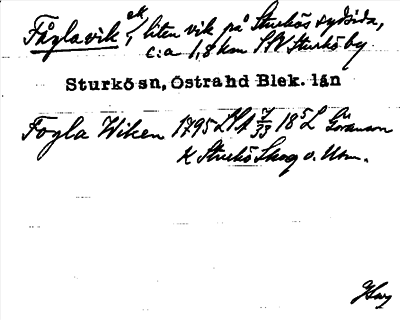 Fåglavik, ek, liten vik på Sturkös sydsida,
c:a 1,8 km SV Sturkö by
Sturkö sn, Östra hd Blek. län
Fogla Wiken 1795 LSA 7/33 18 L Göranson
K Sturkö Skog o. Utm.